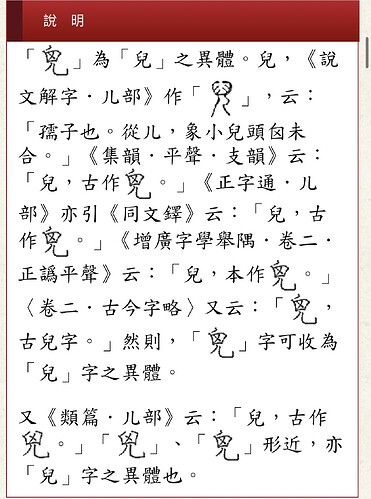 說 明
「」為「兒」之異體。兒，《說
文解字．儿部》作「」，云：
「孺子也。從儿，象小兒頭囟未
合。」《集韻．平聲．支韻》云：
「兒，古作。」《正字通．儿
部》亦引《同文鐸》云：「兒，古
作。」《增廣字學舉隅．卷二．
正譌平聲》云：「兒，本作。」
〈卷二．古今字略〉又云：「，
古兒字。」然則，「」字可收為
「兒」字之異體。
又《類篇．儿部》云：「兒，古作
。」「」、「」形近，亦
「兒」字之異體也。